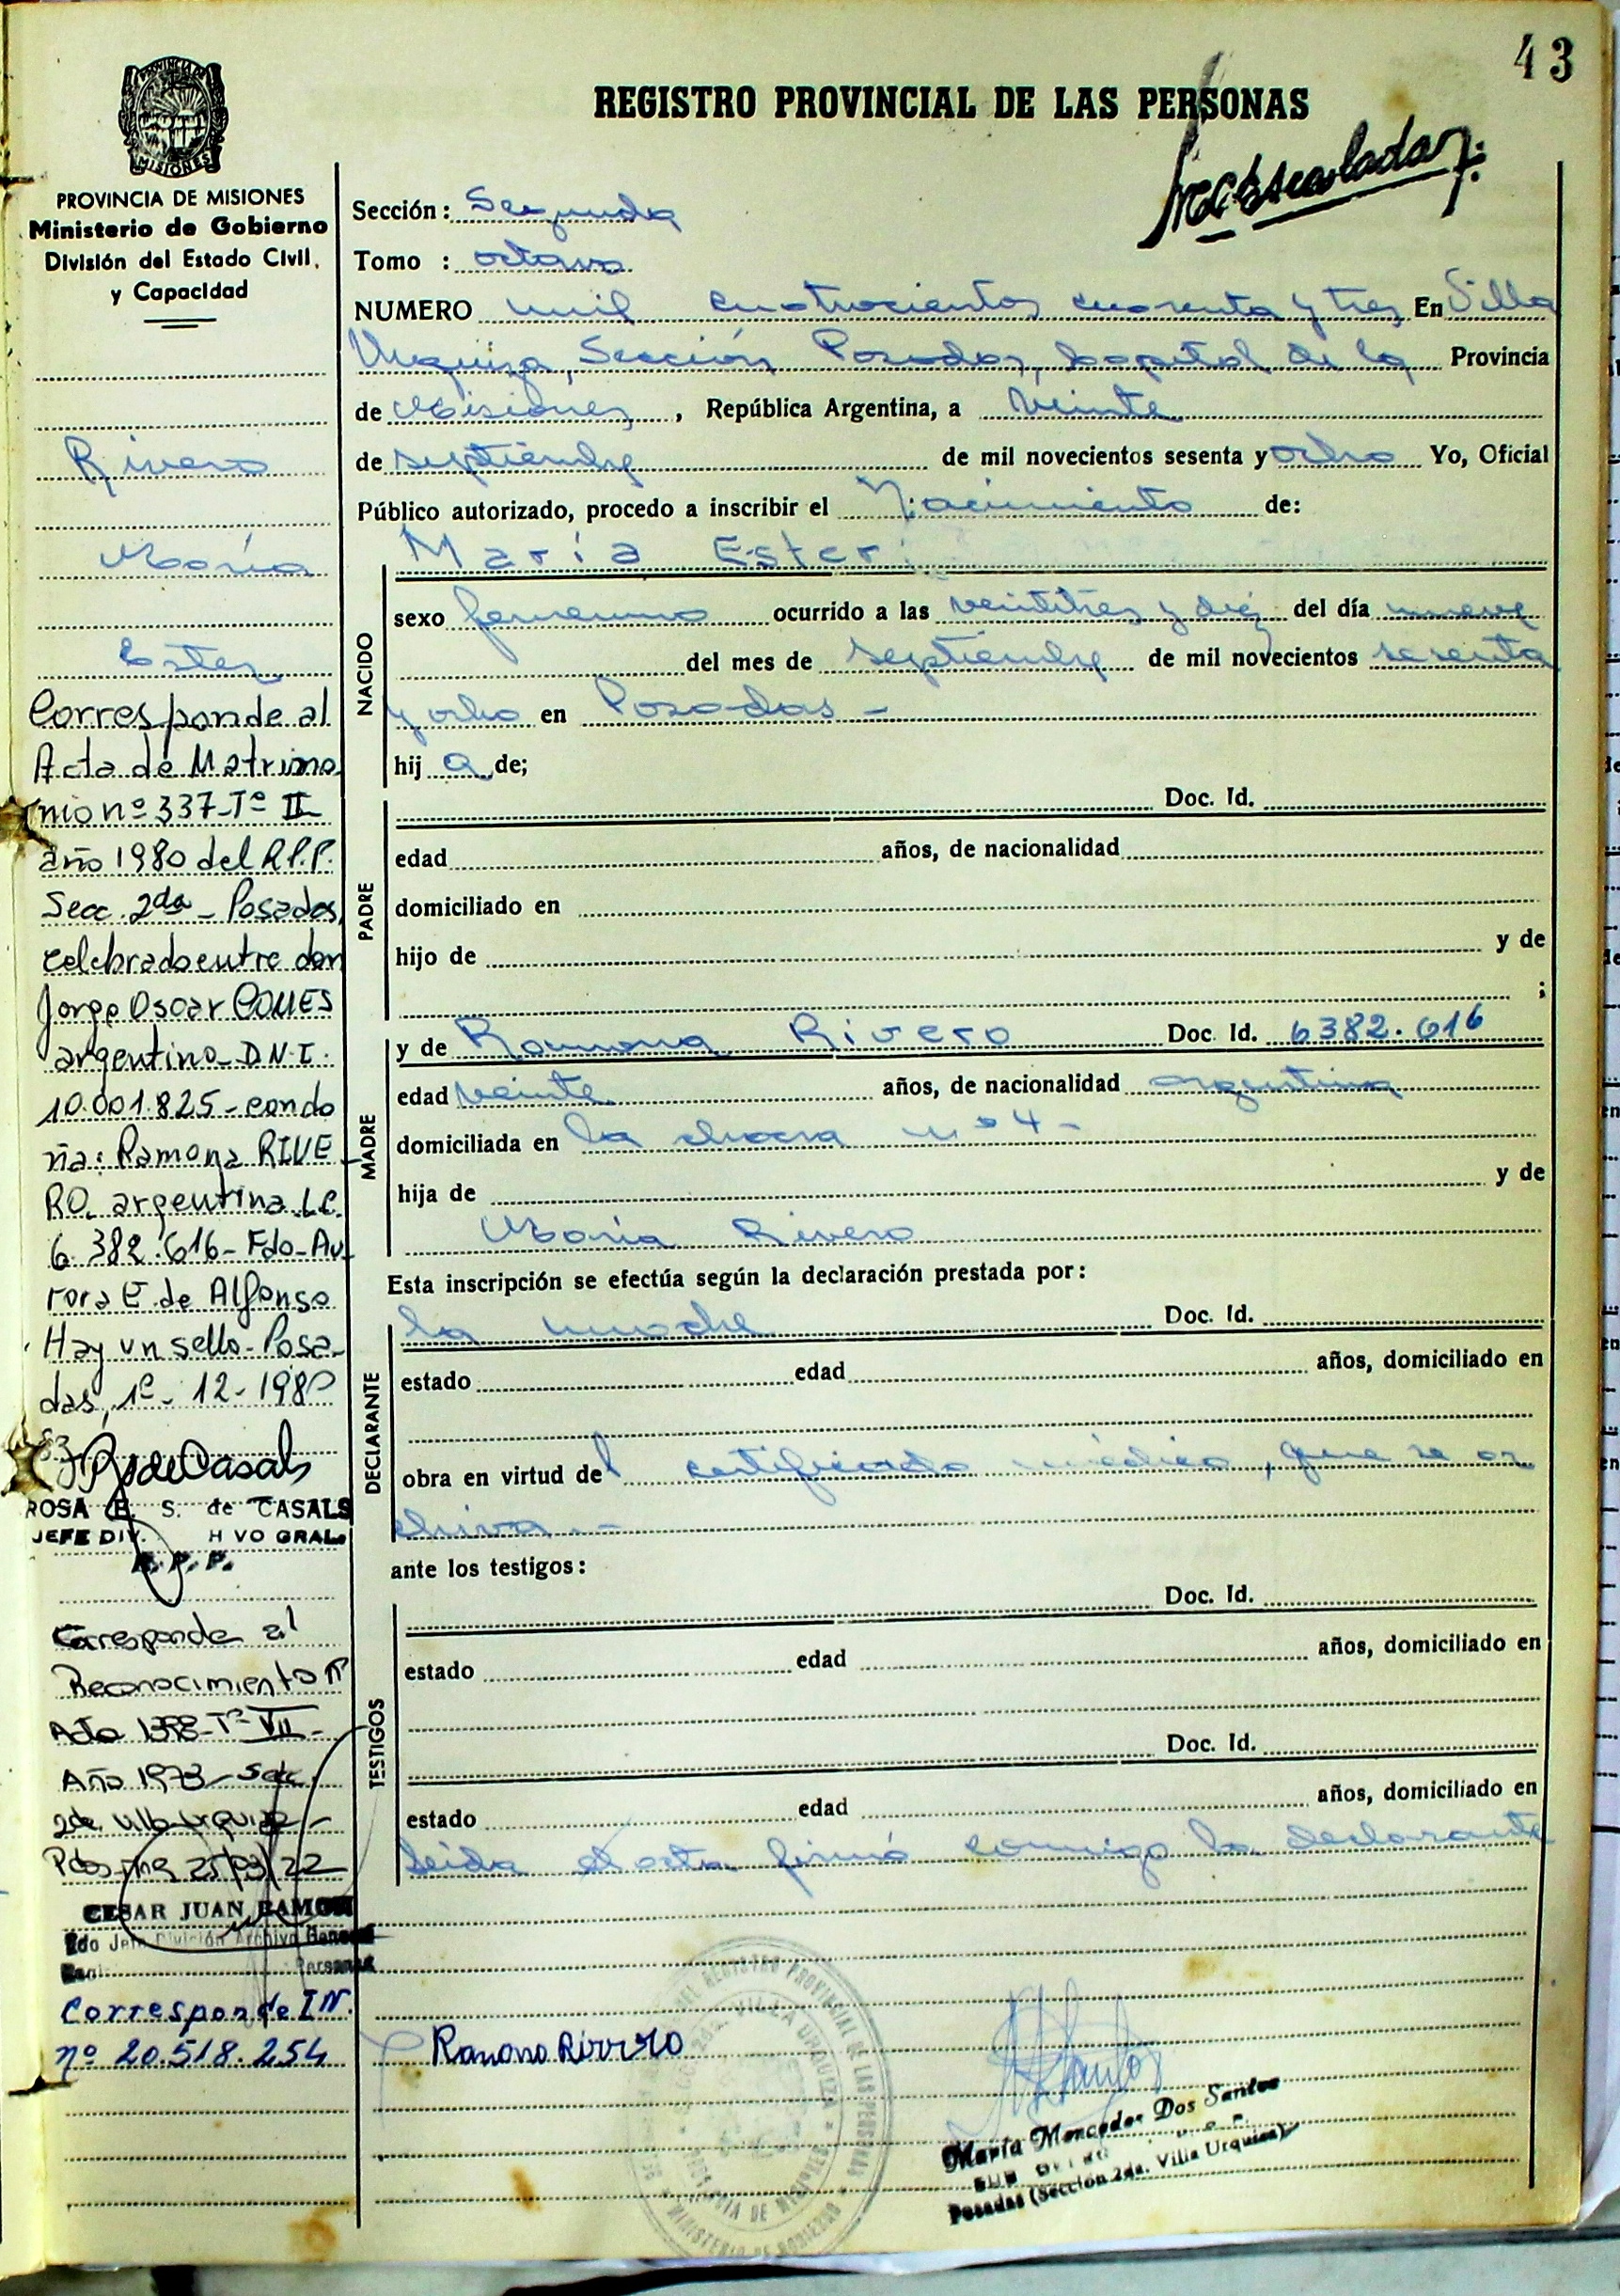 43
REGISTRO PROVINCIAL DE LAS PERSONAS
PROVINCIA DE MISIONES
Ministerio de Gobierno
División del Estado Civil,
y Capacidad
Rivero
María
Ester
Corresponde al
Acta de Matrimo
nio nº 337-Tº II
año 1980 del R.P.P.
Secc. 2da - Posadas,
celebrado entre don
Jorge Oscar GOMES
argentino - D.N.I.
10.001.825 - con do
ña: Ramona RIVE
RO. argentina. L.C.
6.382.616 - Fdo - Au
rora E. de Alfonso
Hay un sello - Posa-
das, 1º - 12 - 1980
ROSA E. S. de CASALS
JEFE DIV. H VO GRAL.
R. P. P.
Corresponde al
Reconocimiento Nº
Acta 1398 - Tº VII -
Año 1973 - Secc.
2da. Villa Urquiza -
Pdas - Mnes 25/03/22
CESAR JUAN RAMON
Jefe División Archivo General
Corresponde I N.
nº 20.518.254
Sección: Segunda
Tomo : octavo
NUMERO mil cuatrocientos cuarenta y tres En Villa
Urquiza, Sección Posadas, Capital de la Provincia
de Misiones, República Argentina, a veinte
de septiembre de mil novecientos sesenta y ocho Yo, Oficial
Público autorizado, procedo a inscribir el Nacimiento de:
María Ester
NACIDO
sexo femenino ocurrido a las veintitres y diez del día nueve
del mes de septiembre de mil novecientos sesenta
y ocho en Posadas -
hij a de;
PADRE
Doc. Id.
edad años, de nacionalidad
domiciliado en
hijo de y de
;
MADRE
y de Ramona Rivero Doc. Id. 6382.616
edad veinte años, de nacionalidad argentina
domiciliada en la chacra nº 4 -
hija de y de
María Rivero
Esta inscripción se efectúa según la declaración prestada por:
DECLARANTE
la madre Doc. Id.
estado edad años, domiciliado en
obra en virtud del certificado médico, que se ar
chiva. -
ante los testigos:
TESTIGOS
Doc. Id.
estado edad años, domiciliado en
Doc. Id.
estado edad años, domiciliado en
Leida el acta firmó conmigo la declarante
Ramona Rivero
María Mercedes Dos Santos
Posadas (Sección 2da. Villa Urquiza)